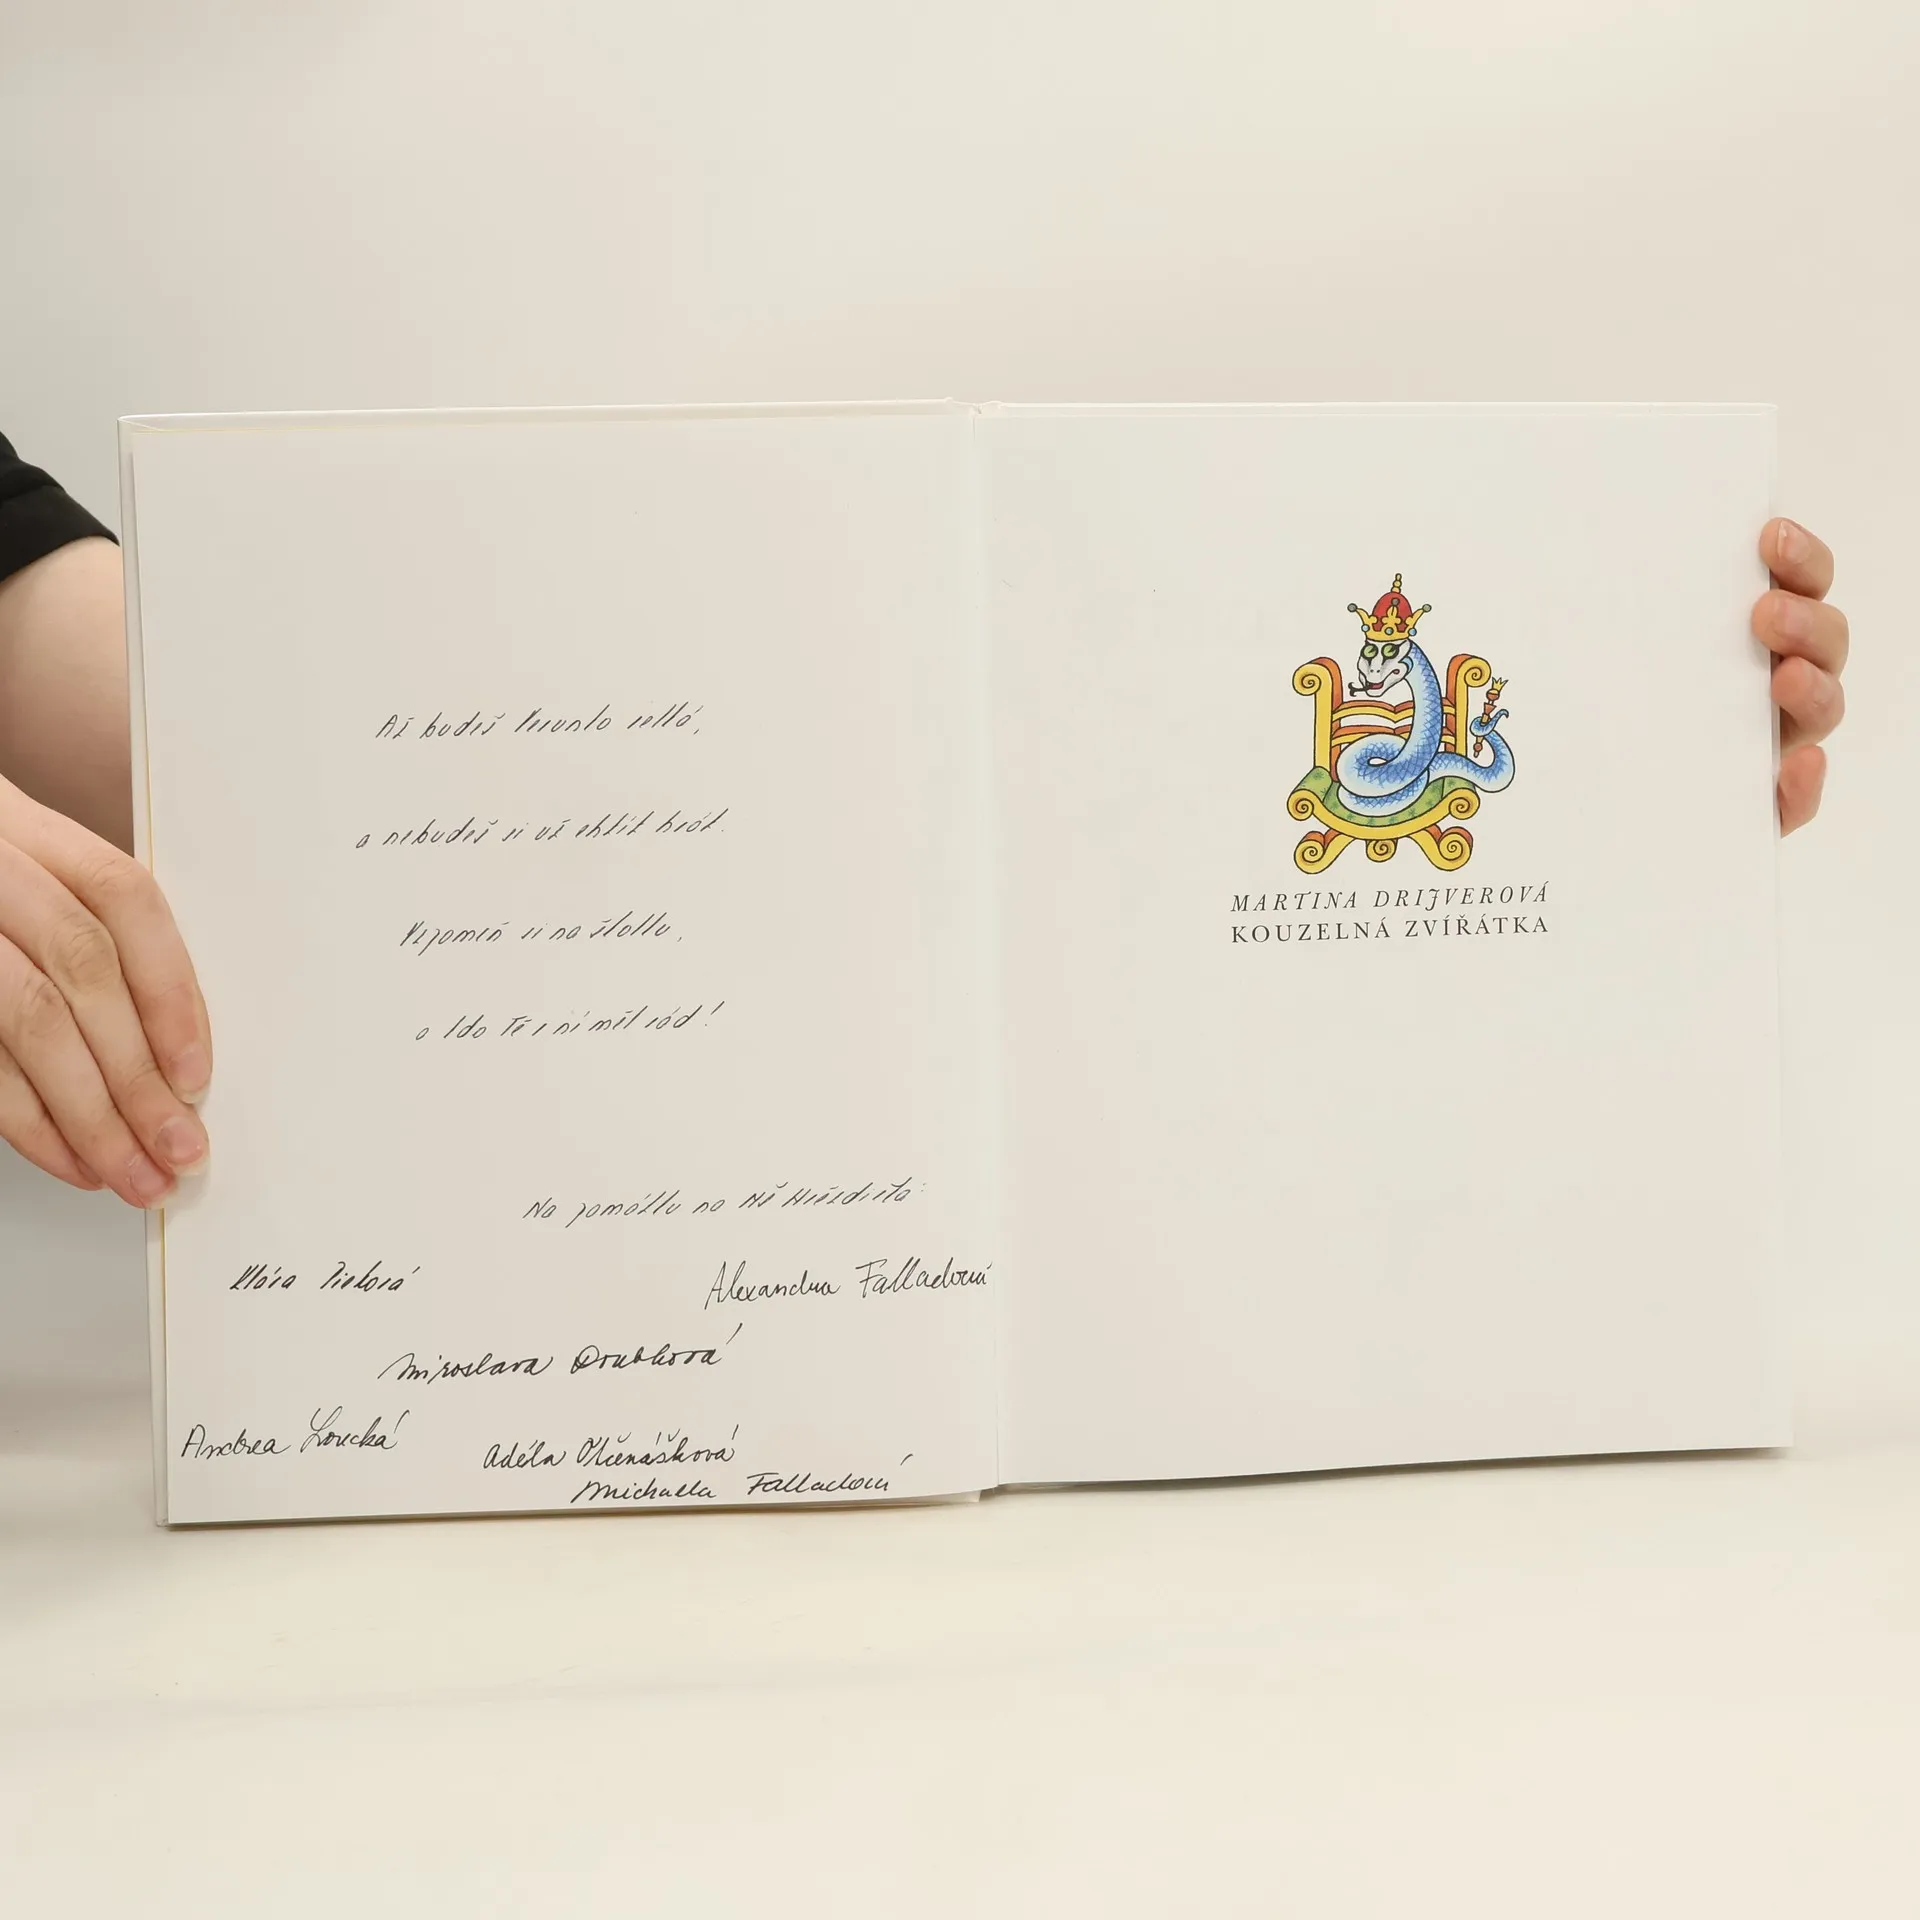 Až budeš Verunko velká,
a nebudeš si už chtít hrát.
Vzpomeň si na školku,
a kdo Tě v ní měl rád!
Na památku na MŠ
Klára
Alexandra Falladová
Miroslava Drubková
Andrea Loucká
Adéla Otčenášková
Michaela Falladová
MARTINA DRIJVEROVÁ
KOUZELNÁ ZVÍŘÁTKA